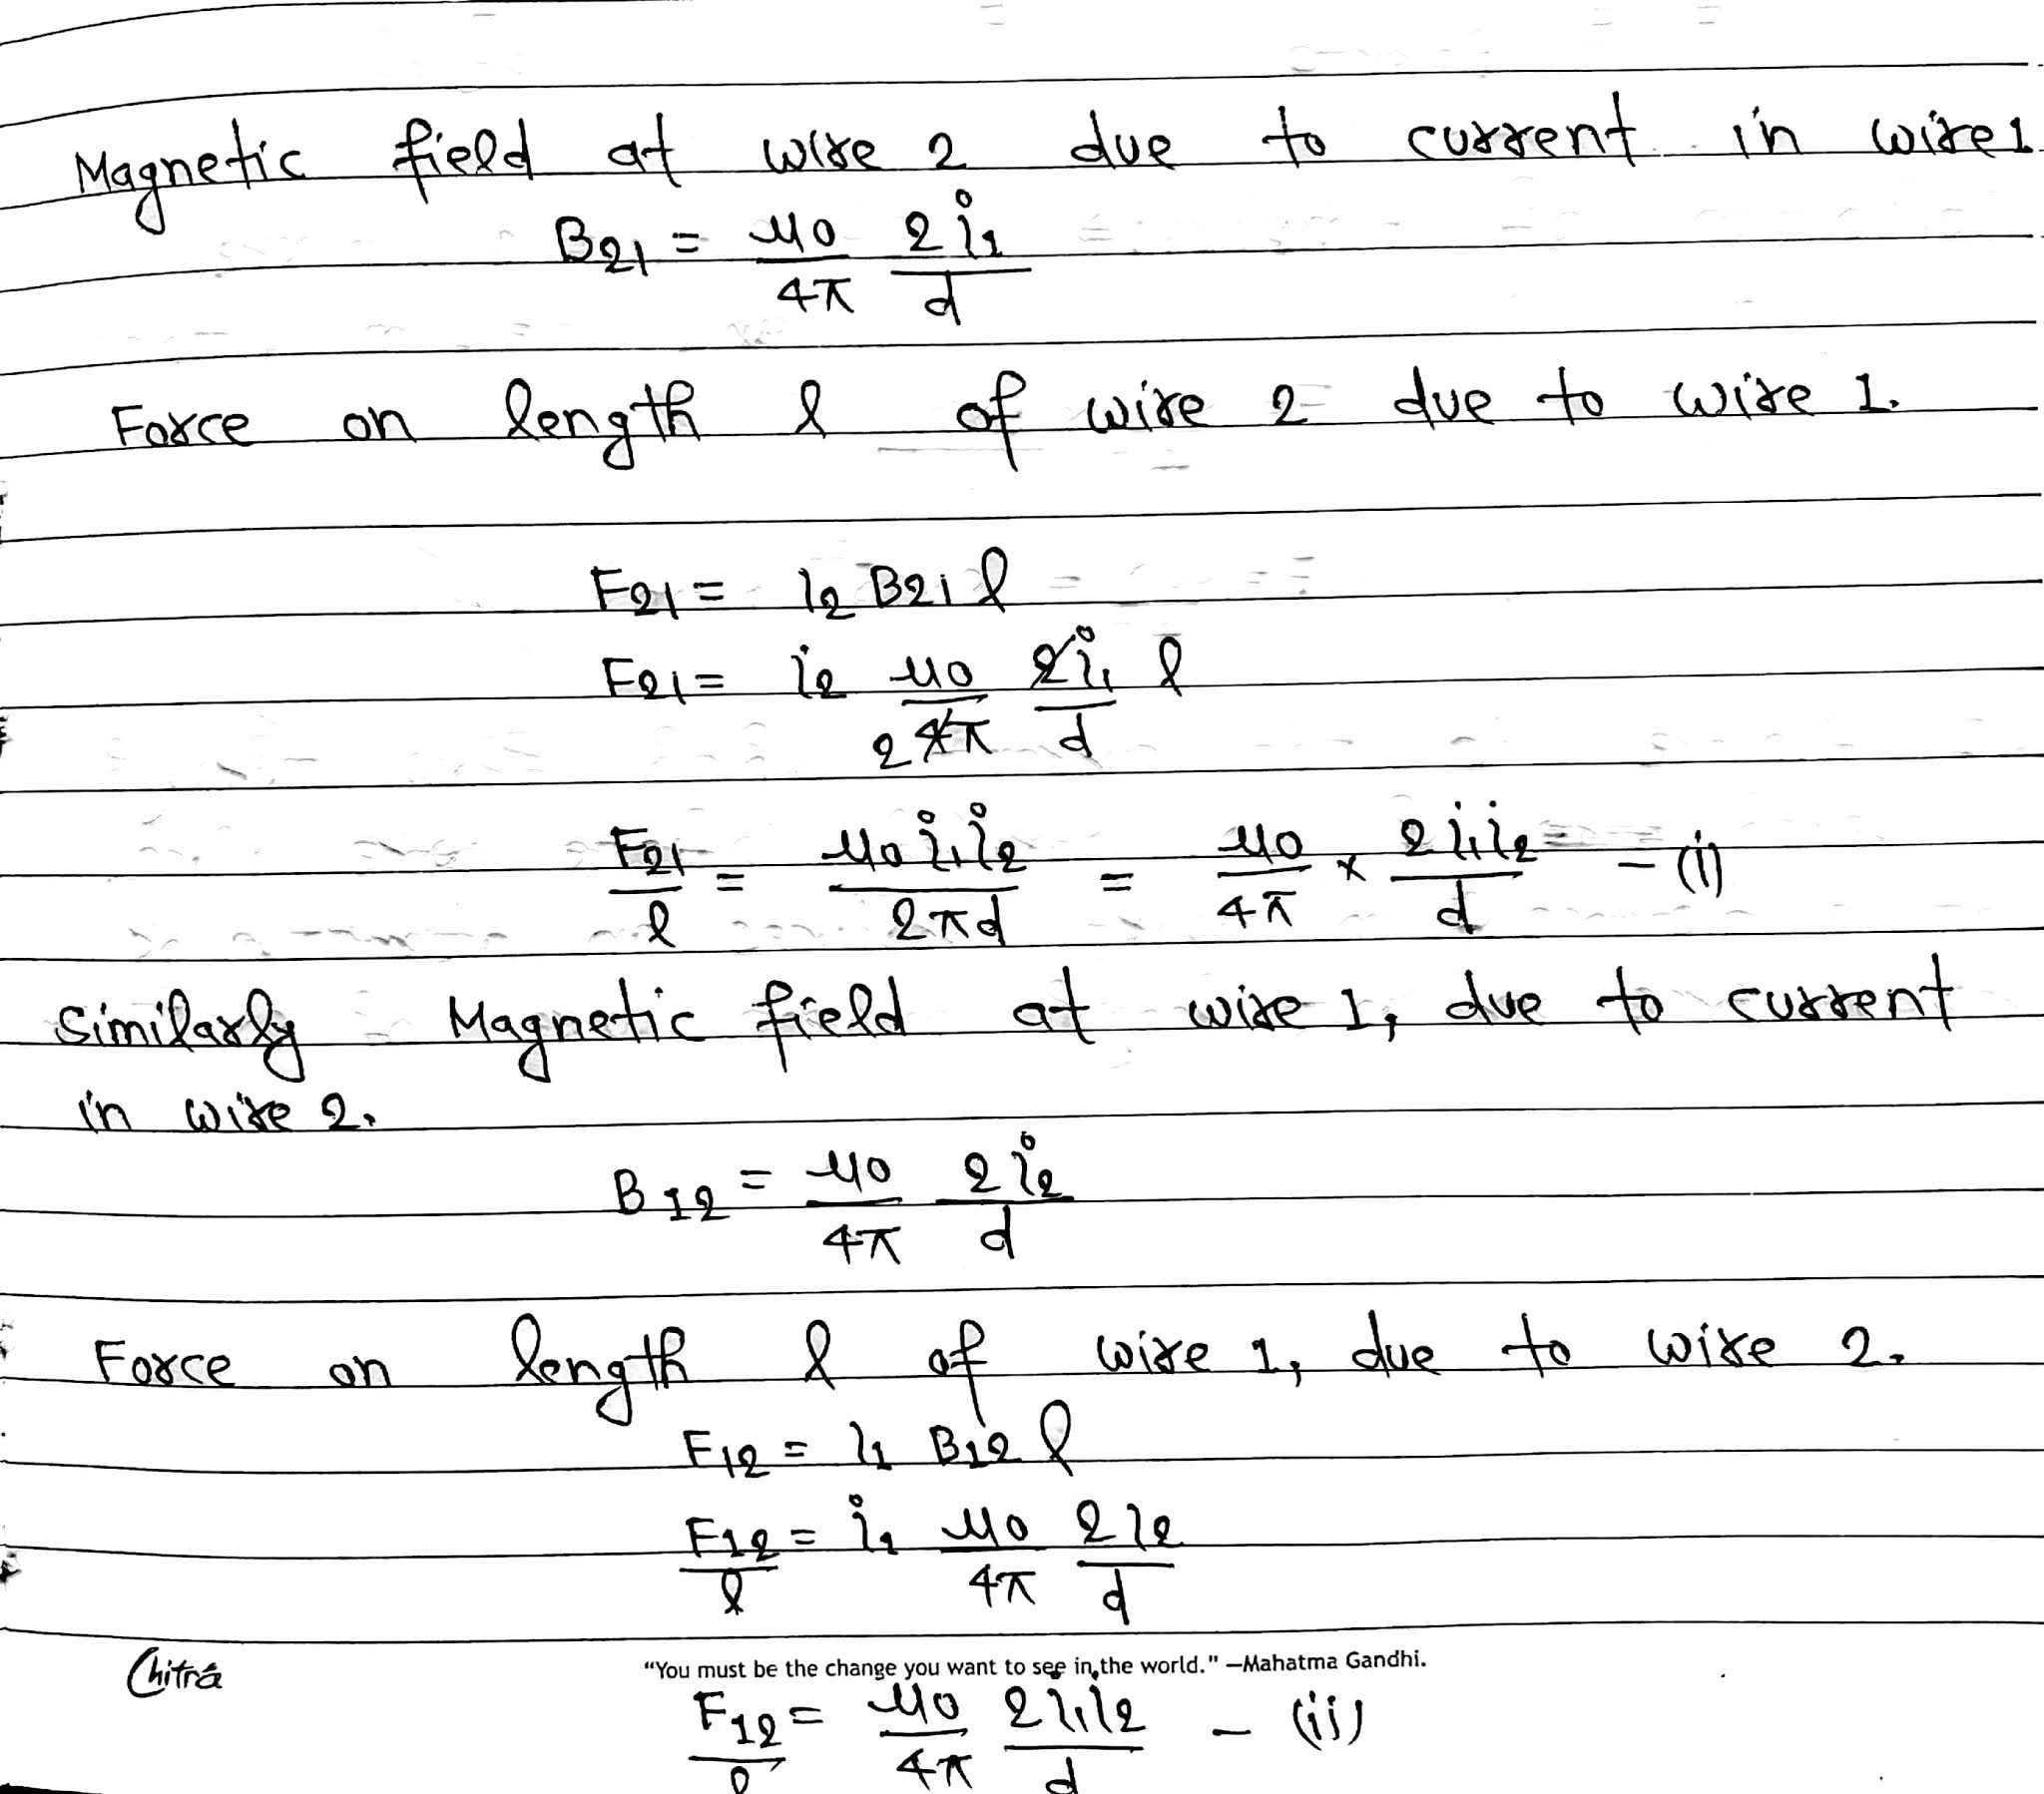 Magnetic field at wire 2 due to current in wire 1
B21 = μ0/4π 2i1/d
Force on length l of wire 2 due to wire 1.
F21 = i2 B21 l
F21 = i2 μ0/2 4π 2i1/d l
F21/l = μ0 i1 i2/2πd = μ0/4π × 2 i1 i2/d - (i)
Similarly Magnetic field at wire 1, due to current
in wire 2.
B12 = μ0/4π 2i2/d
Force on length l of wire 1, due to wire 2.
F12 = i1 B12 l
F12/l = i1 μ0/4π 2i2/d
Chitra
"You must be the change you want to see in the world." —Mahatma Gandhi.
F12/l = μ0/4π 2 i1 i2/d - (ii)